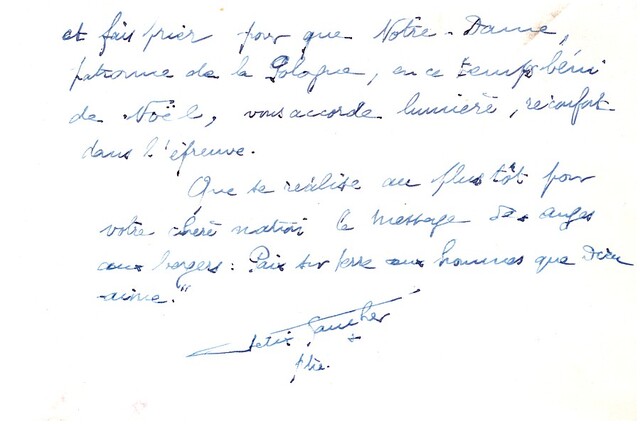 et fais prier pour que Notre-Dame,
patronne de la Pologne, en ce temps béni
de Noël, vous accorde lumière, réconfort
dans l'épreuve.
Que se réalise au plus tôt pour
votre chère nation le message des anges
aux bergers : Paix sur terre aux hommes que Dieu
aime."
ptre.